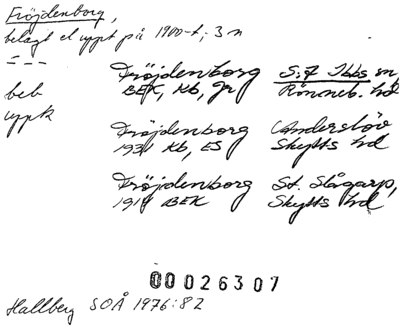 Fröjdenborg,
belagt el uppt på 1900-t; 3 n
beb
uppk
Fröjdenborg S:t Ibbs sn,
BEK, Kb, Jr Rönneb. hd
Fröjdenborg Anderslöv
1931 Kb, ES Skytts hd
Fröjdenborg St. Slågarp,
1914 BEK Skytts hd
00026307
Hallberg SOÅ 1976:82